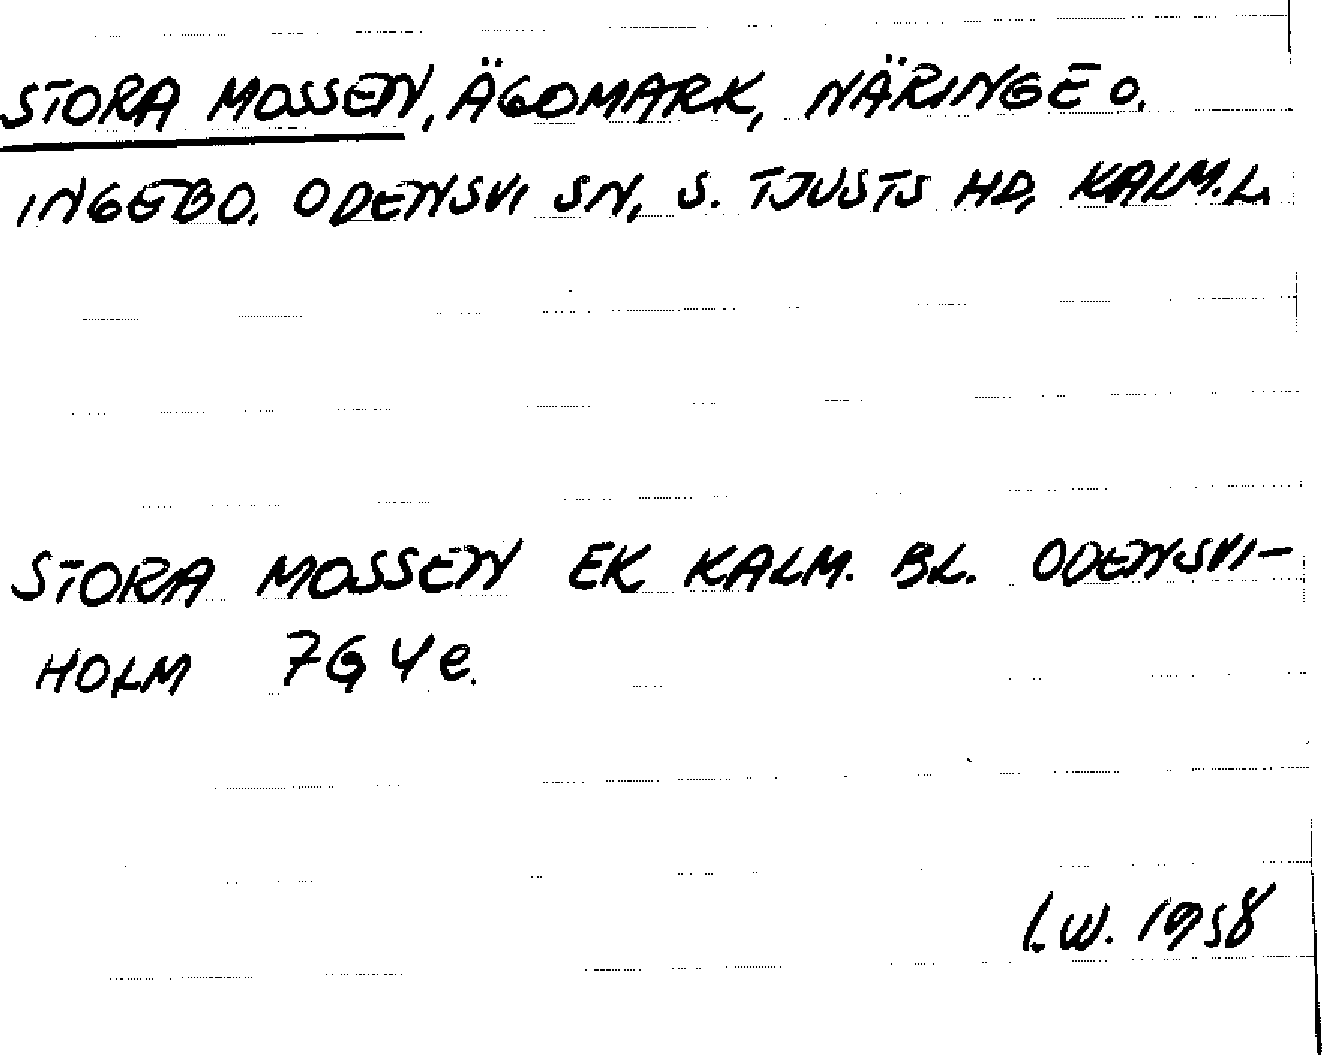 STORA MOSSEN, ÄGOMARK, NÄRINGE O.
INGEBO. ODENSVI SN, S. TJUSTS HD, KALM.L.
STORA MOSSEN EK KALM. BL. ODENSVI-
HOLM 7G 4e.
I.W. 1958